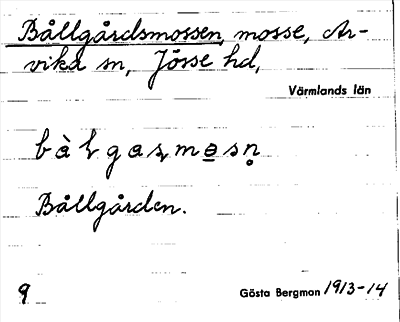 Bållgårdsmossen, mosse, Ar-
vika sn, Jösse hd,
Värmlands län
Bållgården.
9
Gösta Bergmon 1913-14